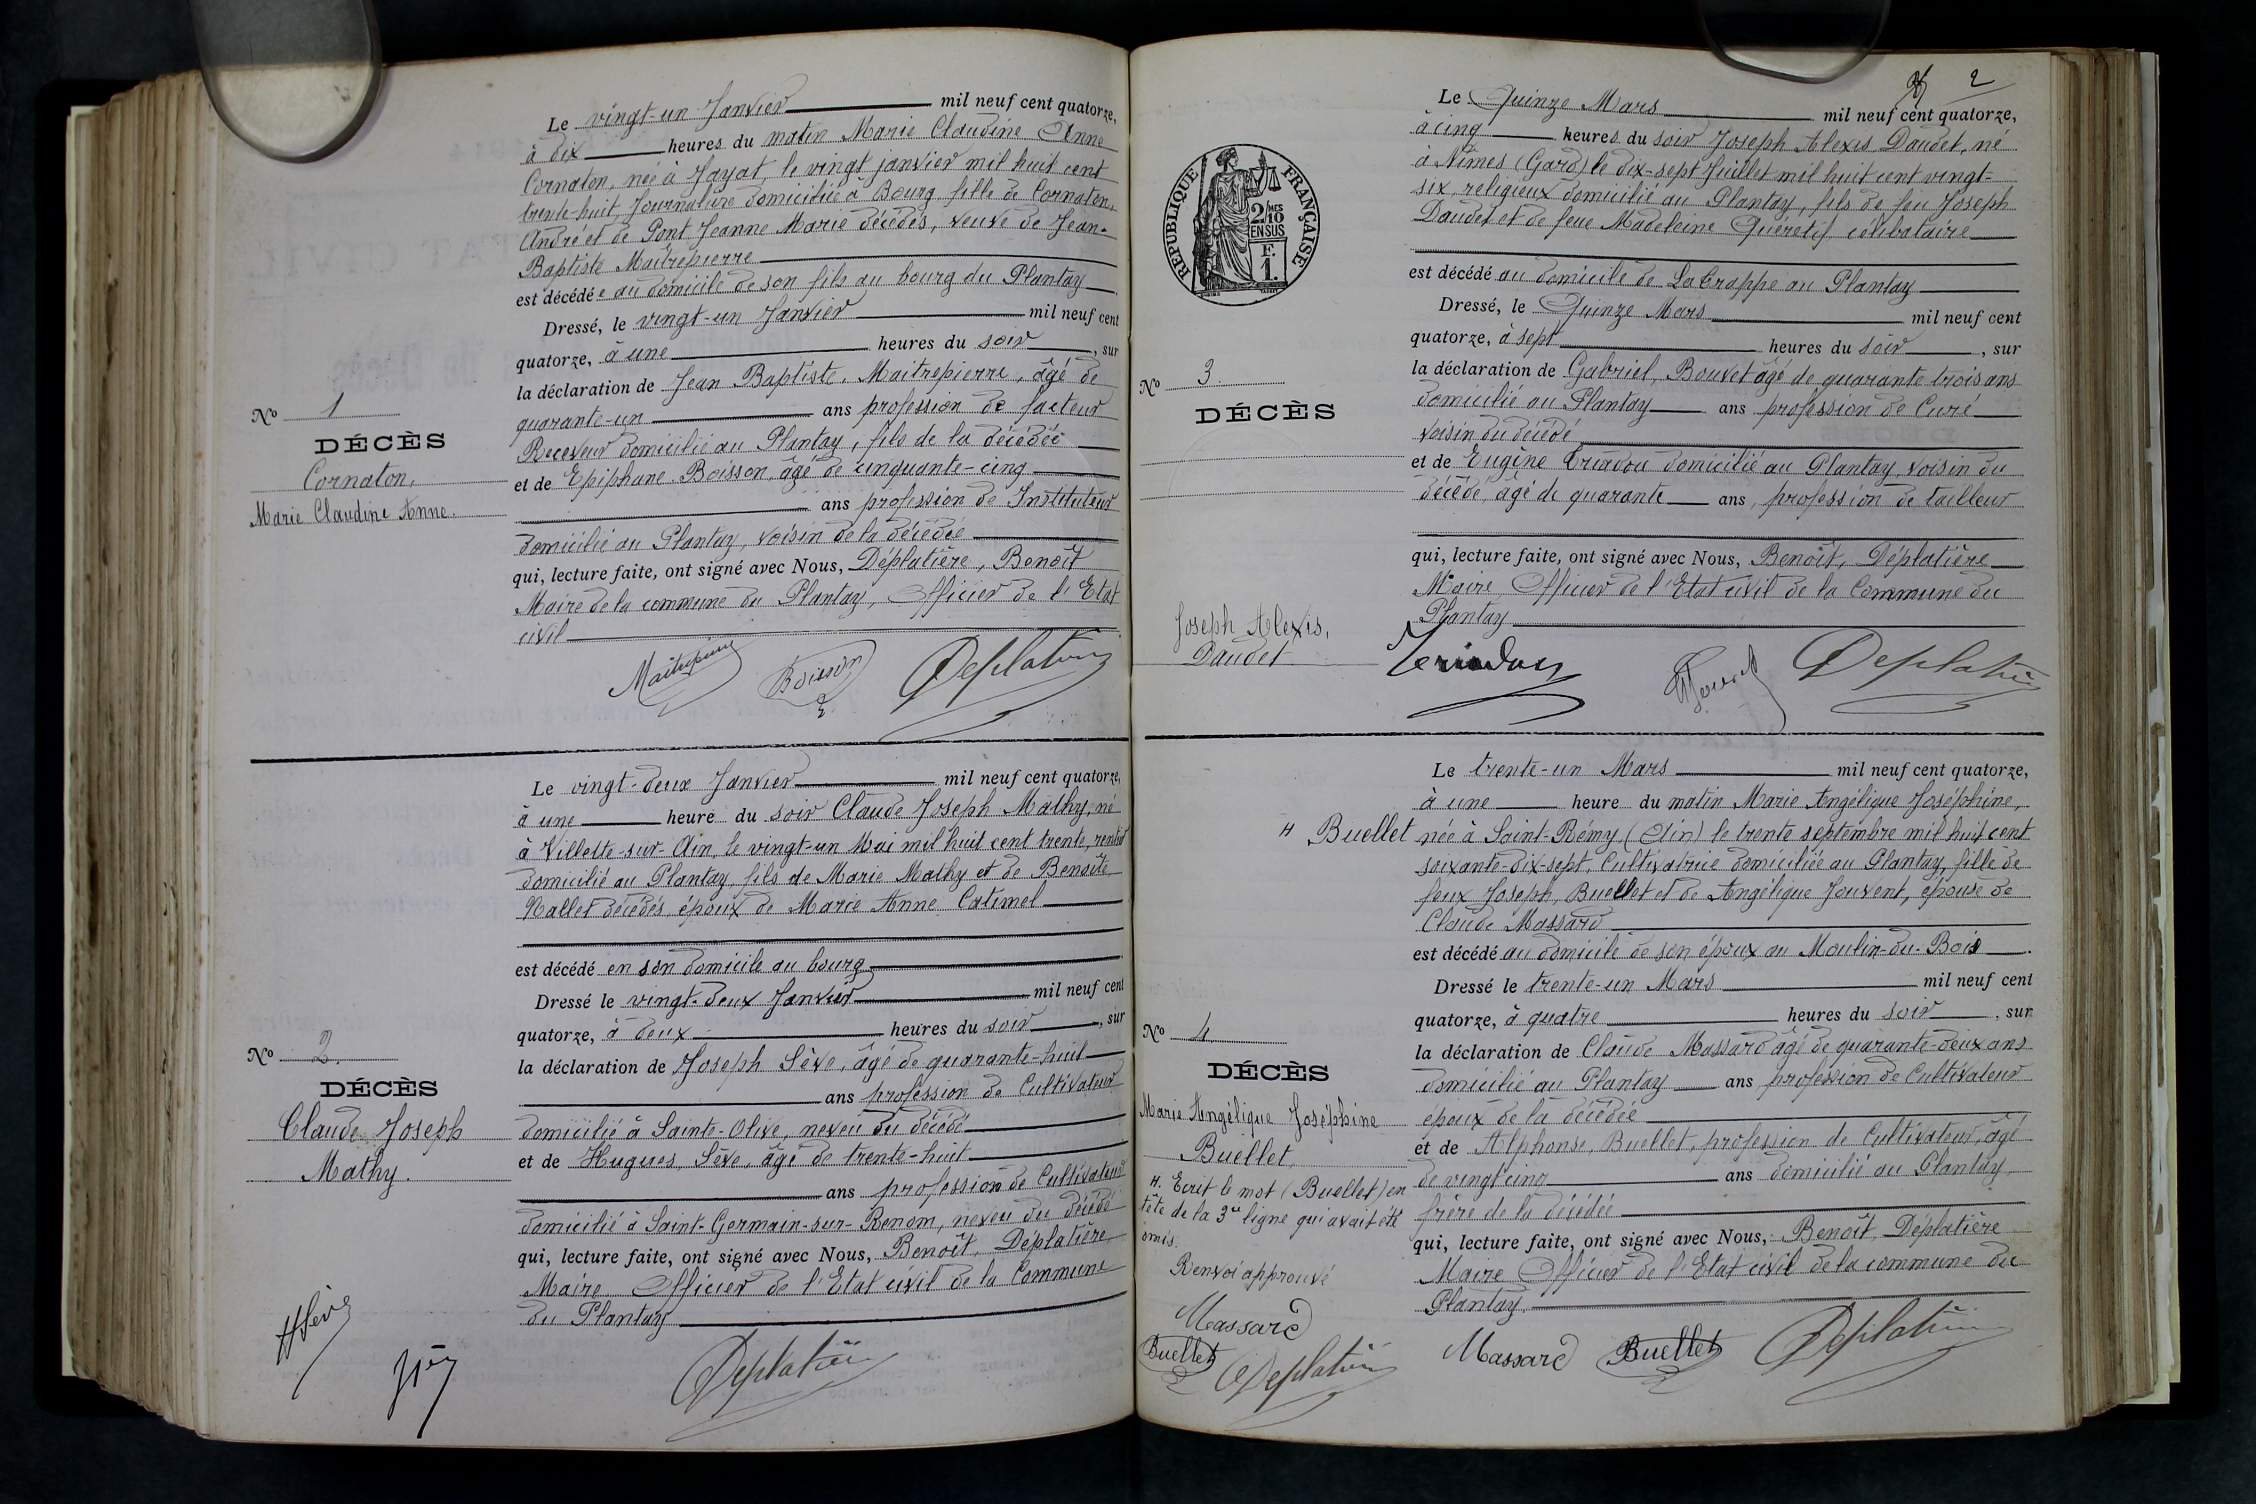 Le vingt-un Janvier mil neuf cent quatorze,
à dix heures du matin Marie Claudine Anne
Cornaton, née à Jayat, le vingt janvier mil huit cent
trente-huit Journalière domiciliée à Bourg fille de Cornaton
André et de Pont Jeanne Marie décédés, veuve de Jean-
Baptiste Maitrepierre
est décédée au domicile de son fils au bourg du Plantay
Dressé, le vingt-un Janvier mil neuf cent
quatorze, à une heures du soir, sur
la déclaration de Jean Baptiste, Maitrepierre, âgé de
quarante-un ans profession de facteur
Receveur domicilié au Plantay, fils de la décédée
et de Epiphane Boisson, âgé de cinquante-cinq
ans profession de Instituteur
domicilié au Plantay, voisin de la décédée
qui, lecture faite, ont signé avec Nous, Déplatière, Benoît
Maire de la commune du Plantay, Officier de l'Etat
civil
Nº 1
DÉCÈS
Cornaton,
Marie Claudine Anne.
Maitrepierre Boisson Deplatière
Le vingt-deux Janvier mil neuf cent quatorze,
à une heure du soir Claude Joseph Mathy, né
à Villette-sur-Ain, le vingt-un Mai mil huit cent trente, rentier
domicilié au Plantay, fils de Marie Mathy et de Benoîte
Nallet décédés, époux de Marie Anne Catimel
est décédé en son domicile au bourg
Dressé le vingt-deux Janvier mil neuf cent
quatorze, à deux heures du soir, sur
la déclaration de Joseph Sève, âgé de quarante-huit
ans profession de Cultivateur
domicilié à Sainte-Olive, neveu du décédé
et de Hugues, Sève, âgé de trente-huit
ans profession de Cultivateur
domicilié à Saint-Germain-sur-Renom, neveu du décédé
qui, lecture faite, ont signé avec Nous, Benoît, Déplatière
Maire Officier de l'Etat civil de la Commune
du Plantay
Nº 2.
DÉCÈS
Claude Joseph
Mathy.
HSève
Deplatière
2
Le Quinze Mars mil neuf cent quatorze,
à cinq heures du soir Joseph Alexis Daudet, né
à Nîmes (Gard) le dix-sept Juillet mil huit cent vingt-
six, religieux domicilié au Plantay, fils de feu Joseph
Daudet et de feue Madeleine Quérétif célibataire
est décédé au domicile de La Trappe au Plantay
Dressé, le Quinze Mars mil neuf cent
quatorze, à sept heures du soir, sur
la déclaration de Gabriel, Bouvet âgé de quarante trois ans
domicilié au Plantay ans, profession de Curé
voisin du décédé
et de Eugène Criadou domicilié au Plantay voisin du
décédé, âgé de quarante ans, profession de tailleur
qui, lecture faite, ont signé avec Nous, Benoît, Déplatière
Maire, Officier de l'Etat civil de la Commune du
Plantay
RÉPUBLIQUE FRANÇAISE
2/10 MES
EN SUS
F.
1.
Nº 3.
DÉCÈS
Joseph Alexis,
Daudet
Bouvet Deplatière
Le trente-un Mars mil neuf cent quatorze,
à une heure du matin Marie Angélique Joséphine,
H Buellet née à Saint-Rémy (Ain) le trente septembre mil huit cent
soixante-dix-sept, Cultivatrice domiciliée au Plantay, fille de
feux Joseph, Buellet et de Angélique Jouvent, épouse de
Claude Massard
est décédé au domicile de son époux au Moulin-du-Bois
Dressé le trente-un Mars mil neuf cent
quatorze, à quatre heures du soir, sur
la déclaration de Claude Massard âgé de quarante-deux ans
domicilié au Plantay ans profession de Cultivateur
epoux de la décédée
et de Alphonse, Buellet, profession de Cultivateur, âgé
de vingt cinq ans domicilié au Plantay,
frère de la décédée
qui, lecture faite, ont signé avec Nous, Benoît, Déplatière
Maire Officier de l'Etat civil de la commune du
Plantay.
Nº 4.
DÉCÈS
Marie Angélique Joséphine
Buellet,
H. Ecrit le mot (Buellet) en
tête de la 3e ligne qui avait été
omis.
Renvoi approuvé
Massard
Buellet Deplatière
Massard Buellet Deplatière